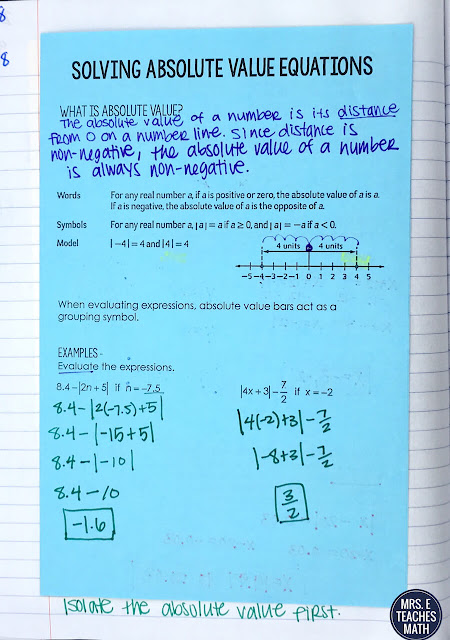 8
8
SOLVING ABSOLUTE VALUE EQUATIONS
WHAT IS ABSOLUTE VALUE?
The absolute value of a number is its distance
from 0 on a number line. Since distance is
non-negative, the absolute value of a number
is always non-negative.
Words For any real number a, if a is positive or zero, the absolute value of a is a.
If a is negative, the absolute value of a is the opposite of a.
Symbols For any real number a, |a| = a if a ≥ 0, and |a| = −a if a < 0.
Model |−4| = 4 and |4| = 4
4 units 4 units
−5 −4 −3 −2 −1 0 1 2 3 4 5
When evaluating expressions, absolute value bars act as a
grouping symbol.
EXAMPLES -
Evaluate the expressions.
8.4 − |2n + 5| if n = −7.5
8.4 − |2(−7.5) + 5|
8.4 − |−15 + 5|
8.4 − |−10|
8.4 − 10
−1.6
|4x + 3| − 7/2 if x = −2
|4(−2)+3| − 7/2
|−8+3| − 7/2
3/2
Isolate the absolute value first.
MRS. E
TEACHES
MATH